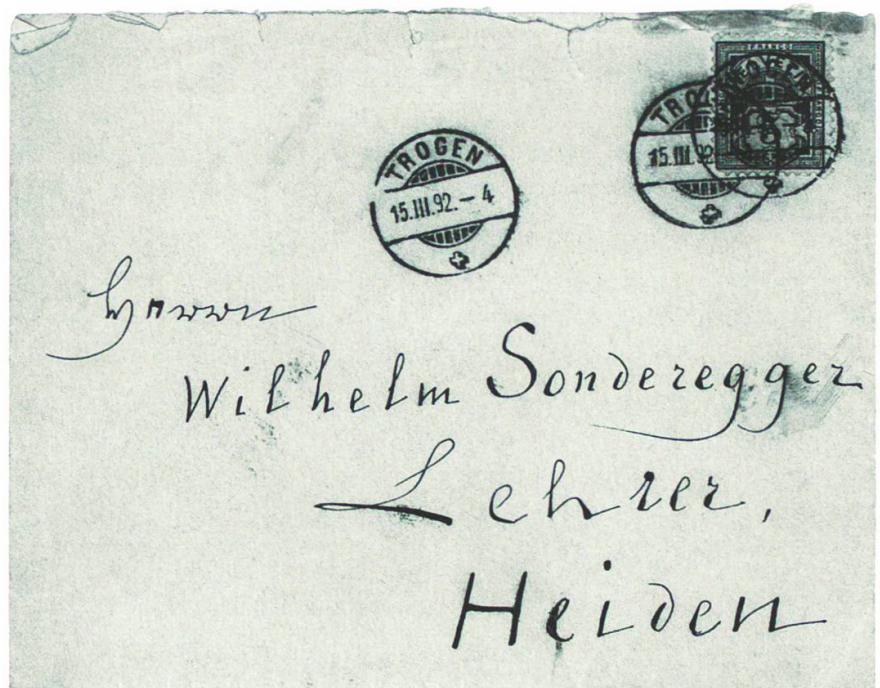 FRANCO
TROGEN
15.III.92.—4
TRO
15.III.92
Herrn
Wilhelm Sonderegger
Lehrer,
Heiden